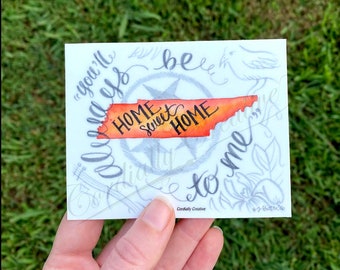 "you'll
always
be
HOME
sweet
HOME
to me"
Cordially Creative